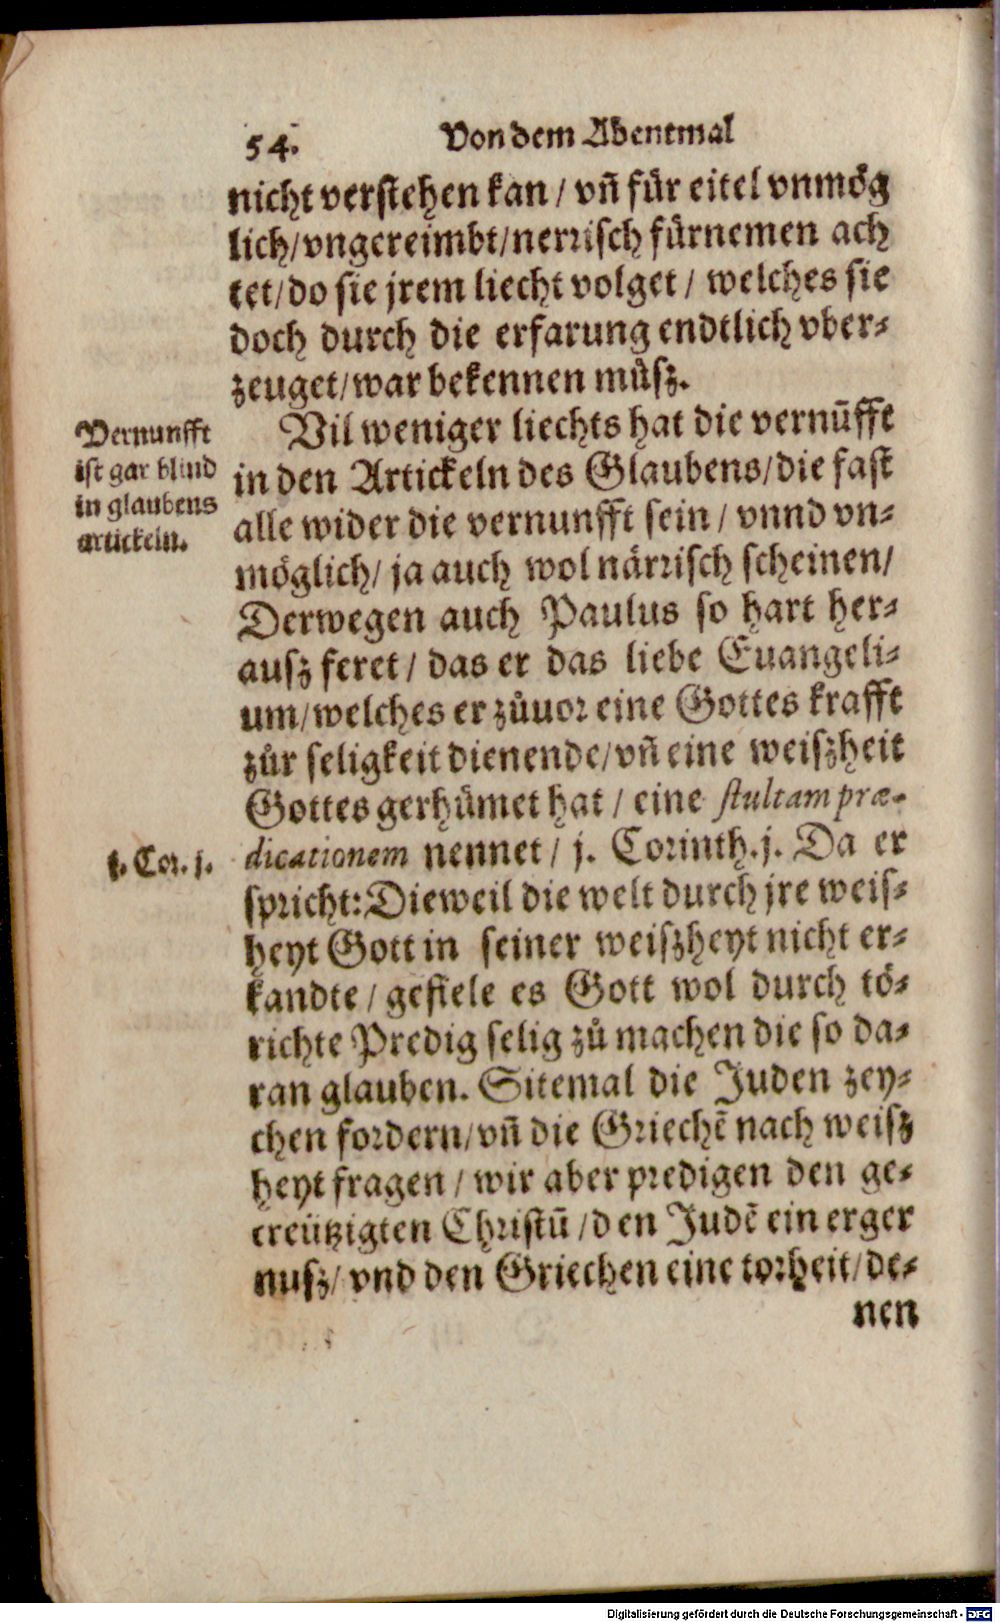 54. Von dem Abentmal
nicht verstehen kan / vn̄ für eitel vnmög
lich/vngereimbt/nerrisch fürnemen ach
tet/do sie jrem liecht volget / welches sie
doch durch die erfarung endtlich vber⸗
zeuget/war bekennen müsz.
Vil weniger liechts hat die vernūfft
in den Artickeln des Glaubens/die fast
alle wider die vernunfft sein / vnnd vn⸗
möglich/ ja auch wol närrisch scheinen/
Derwegen auch Paulus so hart her⸗
ausz feret / das er das liebe Euangeli⸗
um/welches er zůuor eine Gottes krafft
zůr seligkeit dienende/vn̄ eine weiszheit
Gottes gerhümet hat / eine stultam præ-
dicationem nennet / j. Corinth.j. Da er
spricht: Dieweil die welt durch jre weis⸗
heyt Gott in seiner weiszheyt nicht er⸗
kandte / gefiele es Gott wol durch tö⸗
richte Predig selig zů machen die so da⸗
ran glauben. Sitemal die Juden zey⸗
chen fordern/vn̄ die Griechē nach weisz
heyt fragen / wir aber predigen den ge⸗
creützigten Christū /den Judē ein erger
nusz/ vnd den Griechen eine torheit/de⸗
nen
Vernunfft
ist gar blind
in glaubens
artickeln.
j. Cor. j.
Digitalisierung gefördert durch die Deutsche Forschungsgemeinschaft - DFG